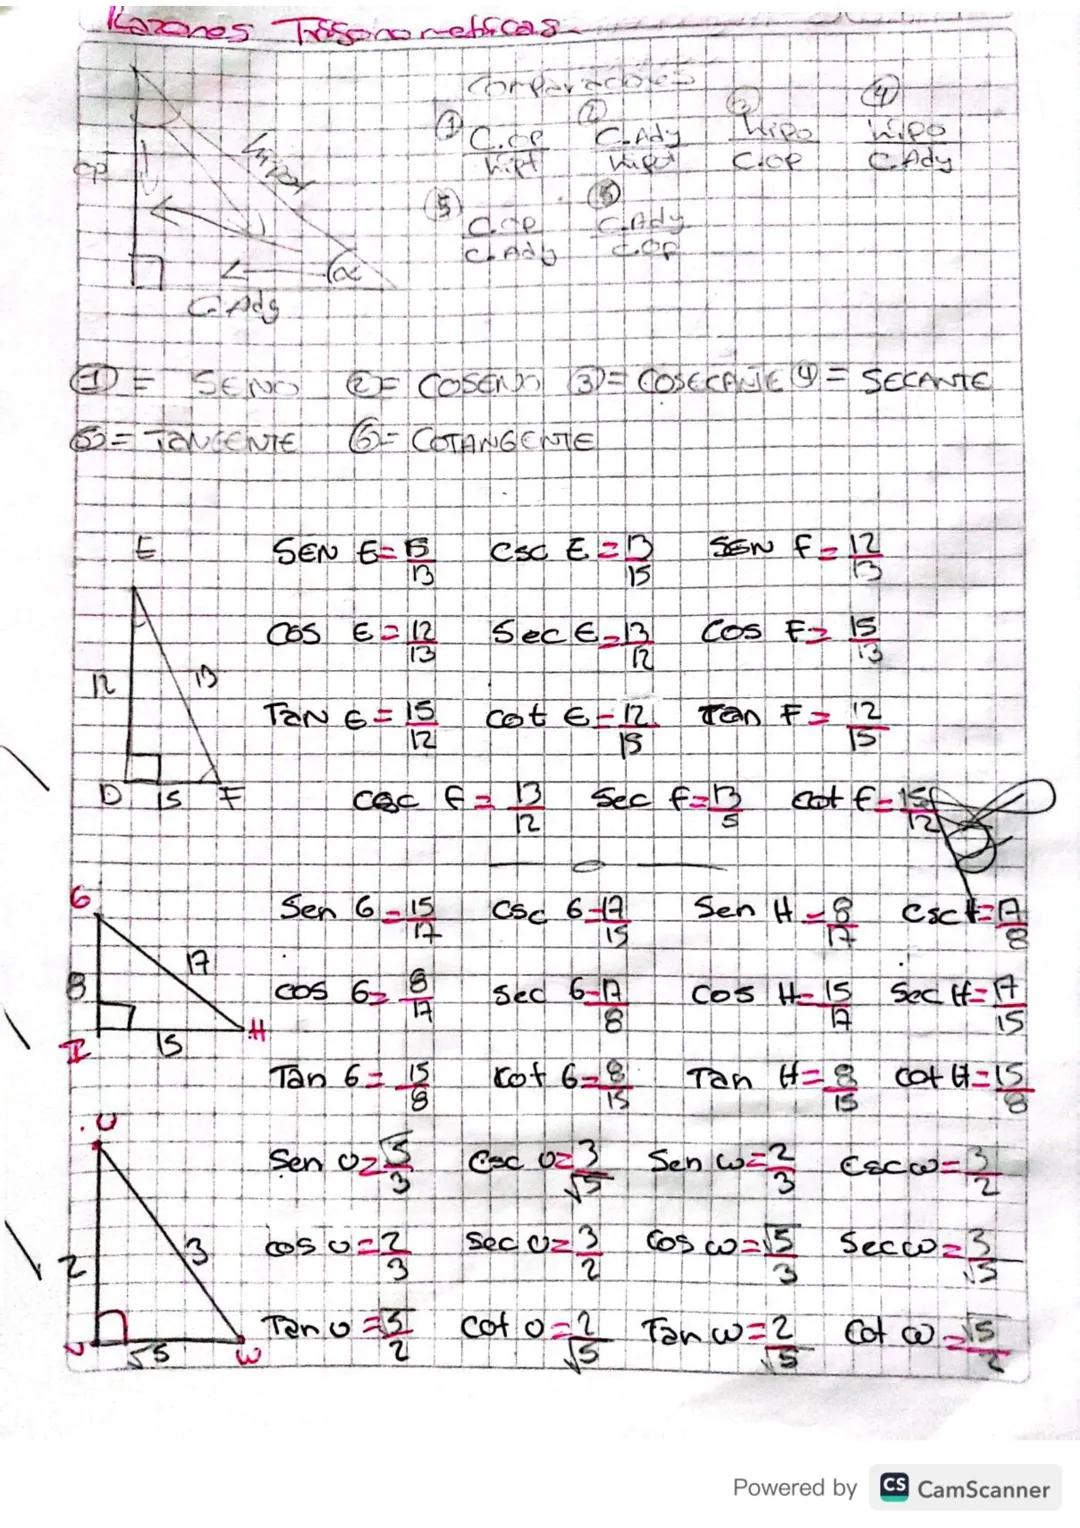 Razones Trigonometricas
Comparaciones
① C.OP/hipt ② C.Ady/hipt ③ hipo/C.OP ④ hipo/C.Ady
⑤ C.OP/C.Ady ⑥ C.Ady/C.OP
OP
hipot
α
C.Ady
① = SENO ②= COSENO ③= COSECANTE ④= SECANTE
⑤= TANGENTE ⑥= COTANGENTE
E SEN E=15/13 CSC E=13/15 SEN F=12/13
COS E=12/13 Sec E=13/12 COS F=15/13
12 13
TAN E=15/12 cot E=12/15 Tan F=12/15
D 15 F csc F=13/12 Sec F=13/5 Cot F=15/12
G Sen G=15/17 CSC G=17/15 Sen H=8/17 CSC H=17/8
17
8 COS G=8/17 Sec G=17/8 COS H=15/17 Sec H=17/15
I 15 H
Tan G=15/8 Cot G=8/15 Tan H=8/15 cot H=15/8
U Sen U=√5/3 CSC U=3/√5 Sen W=2/3 CSC W=3/2
2 3 cos U=2/3 Sec U=3/2 Cos W=√5/3 Sec W=3/√5
Tan U=√5/2 Cot U=2/√5 Tan W=2/√5 Cot W=√5/2
V √5 W
Powered by CS CamScanner